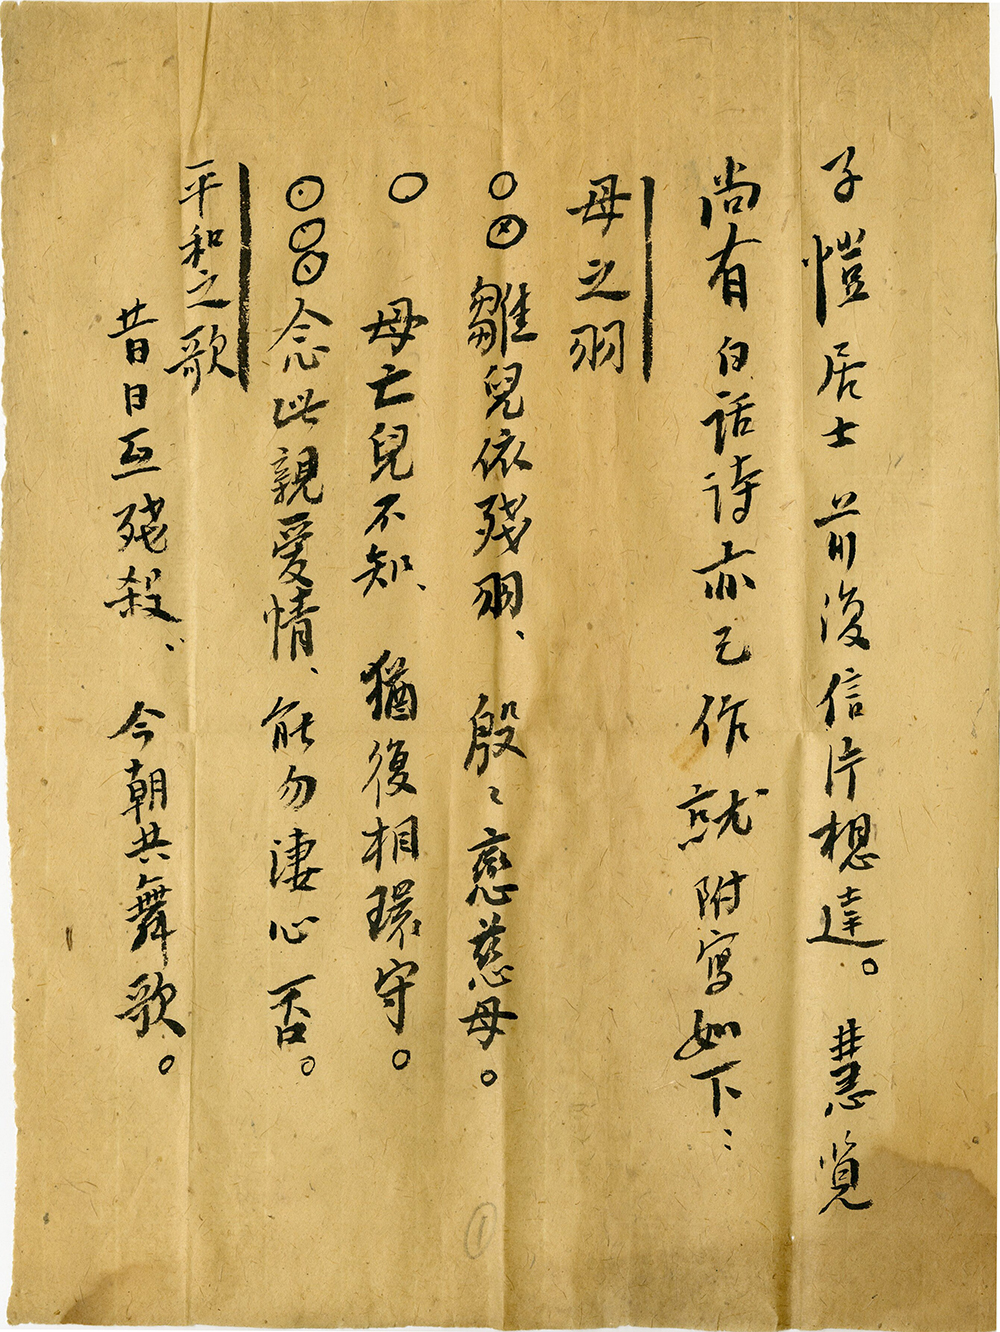 子愷居士 前後信片想達。 慧覽
尚有白話詩亦已作就附寫如下：
母之羽
雛兒依殘羽、 殷〻戀慈母。
母亡兒不知、 猶復相環守。
念此親愛情、能勿淒心否。
平和之歌
昔日互殘殺、 今朝共舞歌。
①